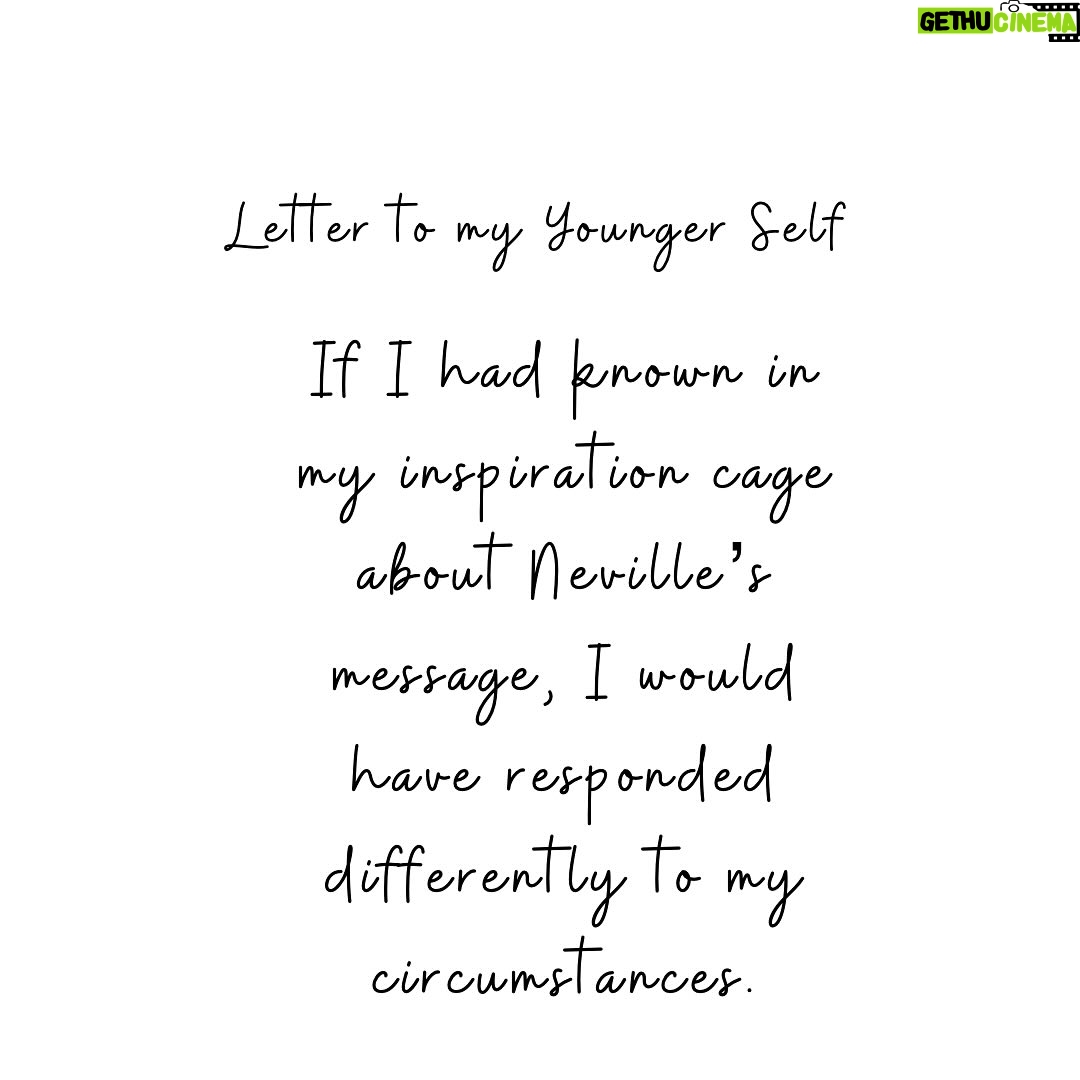 GETHUCINEMA
Letter to my Younger Self
If I had known in
my inspiration cage
about Neville's
message, I would
have responded
differently to my
circumstances.